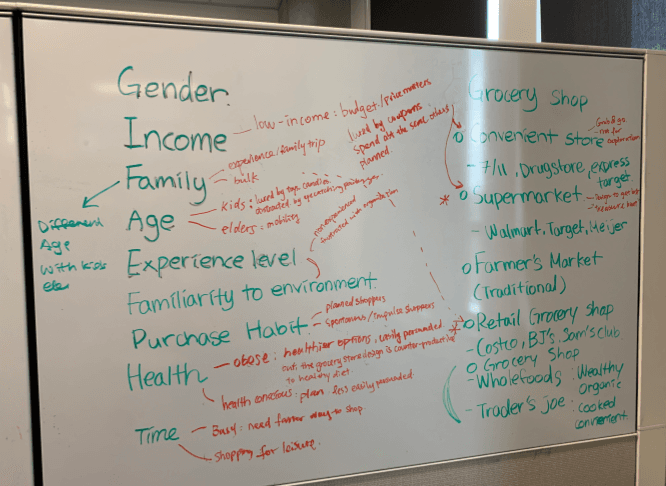 Gender
Income
- low-income: budget / price matters
lured by coupons
spend on the same, others
planned
Family
- experience/family trip
- bulk
Different
Age
With kids
Age
- kids: lured by toys, candies
- elders: mobility
Experience level
nonexperienced
frustrated with organization
Familiarity to environment
Purchase Habit
- planned shoppers
- spontanous / impulse shoppers
Health
- obese: healthier options, easily persuaded.
but, the grocery store design is counter-productive
to healthy diet.
health conscious: plan, less easily persuaded.
Time
- Busy: need faster way to shop.
- shopping for leisure.
Grocery Shop
Convenient store
- Grab & go
- not for
exploration
- 7/11, Drugstore, express
target.
* Supermarket
- Walmart, Target, Meijer
Farmer's Market
(Traditional)
Retail Grocery shop
- Costco, BJ's, Sam's Club
Grocery Shop
- Wholefoods: Wealthy
organic
- Trader's joe: cooked
convenient.